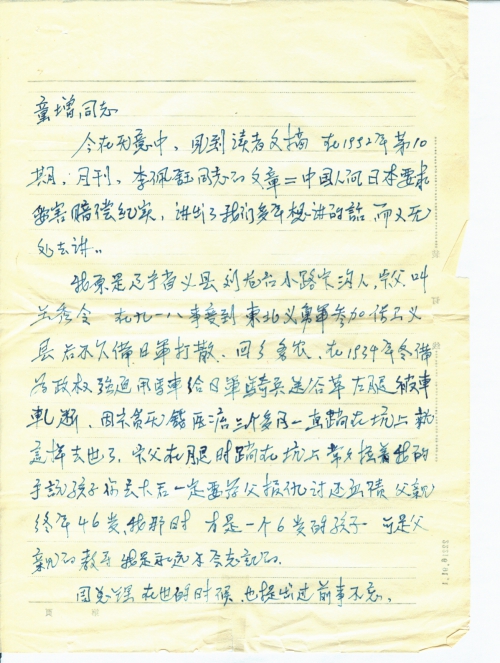 童增同志
今在无意中，见到读者文摘 在1992年第10
期，月刊，李佩钰同志的文章=中国人向日本要求
受害赔偿纪实，讲出了我们多年想讲的话 而又无
处去讲..
我家是辽宁省义县刘龙台小路 沟人，父叫
兰秀 在九一八事变到东北义勇军参加 义
县后不久 日军打散，回乡务农，在1934年冬
政权强迫用马车给日军 兵送给草左腿被车
轧断，因家贫无钱医治三个多月一直躺在炕上就
这样去世了，父在 时躺在炕上 着我的
手说孩子你长大后一定要学父报仇讨还血债 父亲
终年46岁，我那时 才是一个6岁的孩子 可是父
亲的教导我是永远不会忘记的.
周总理在世的时候，也提出过前事不忘.